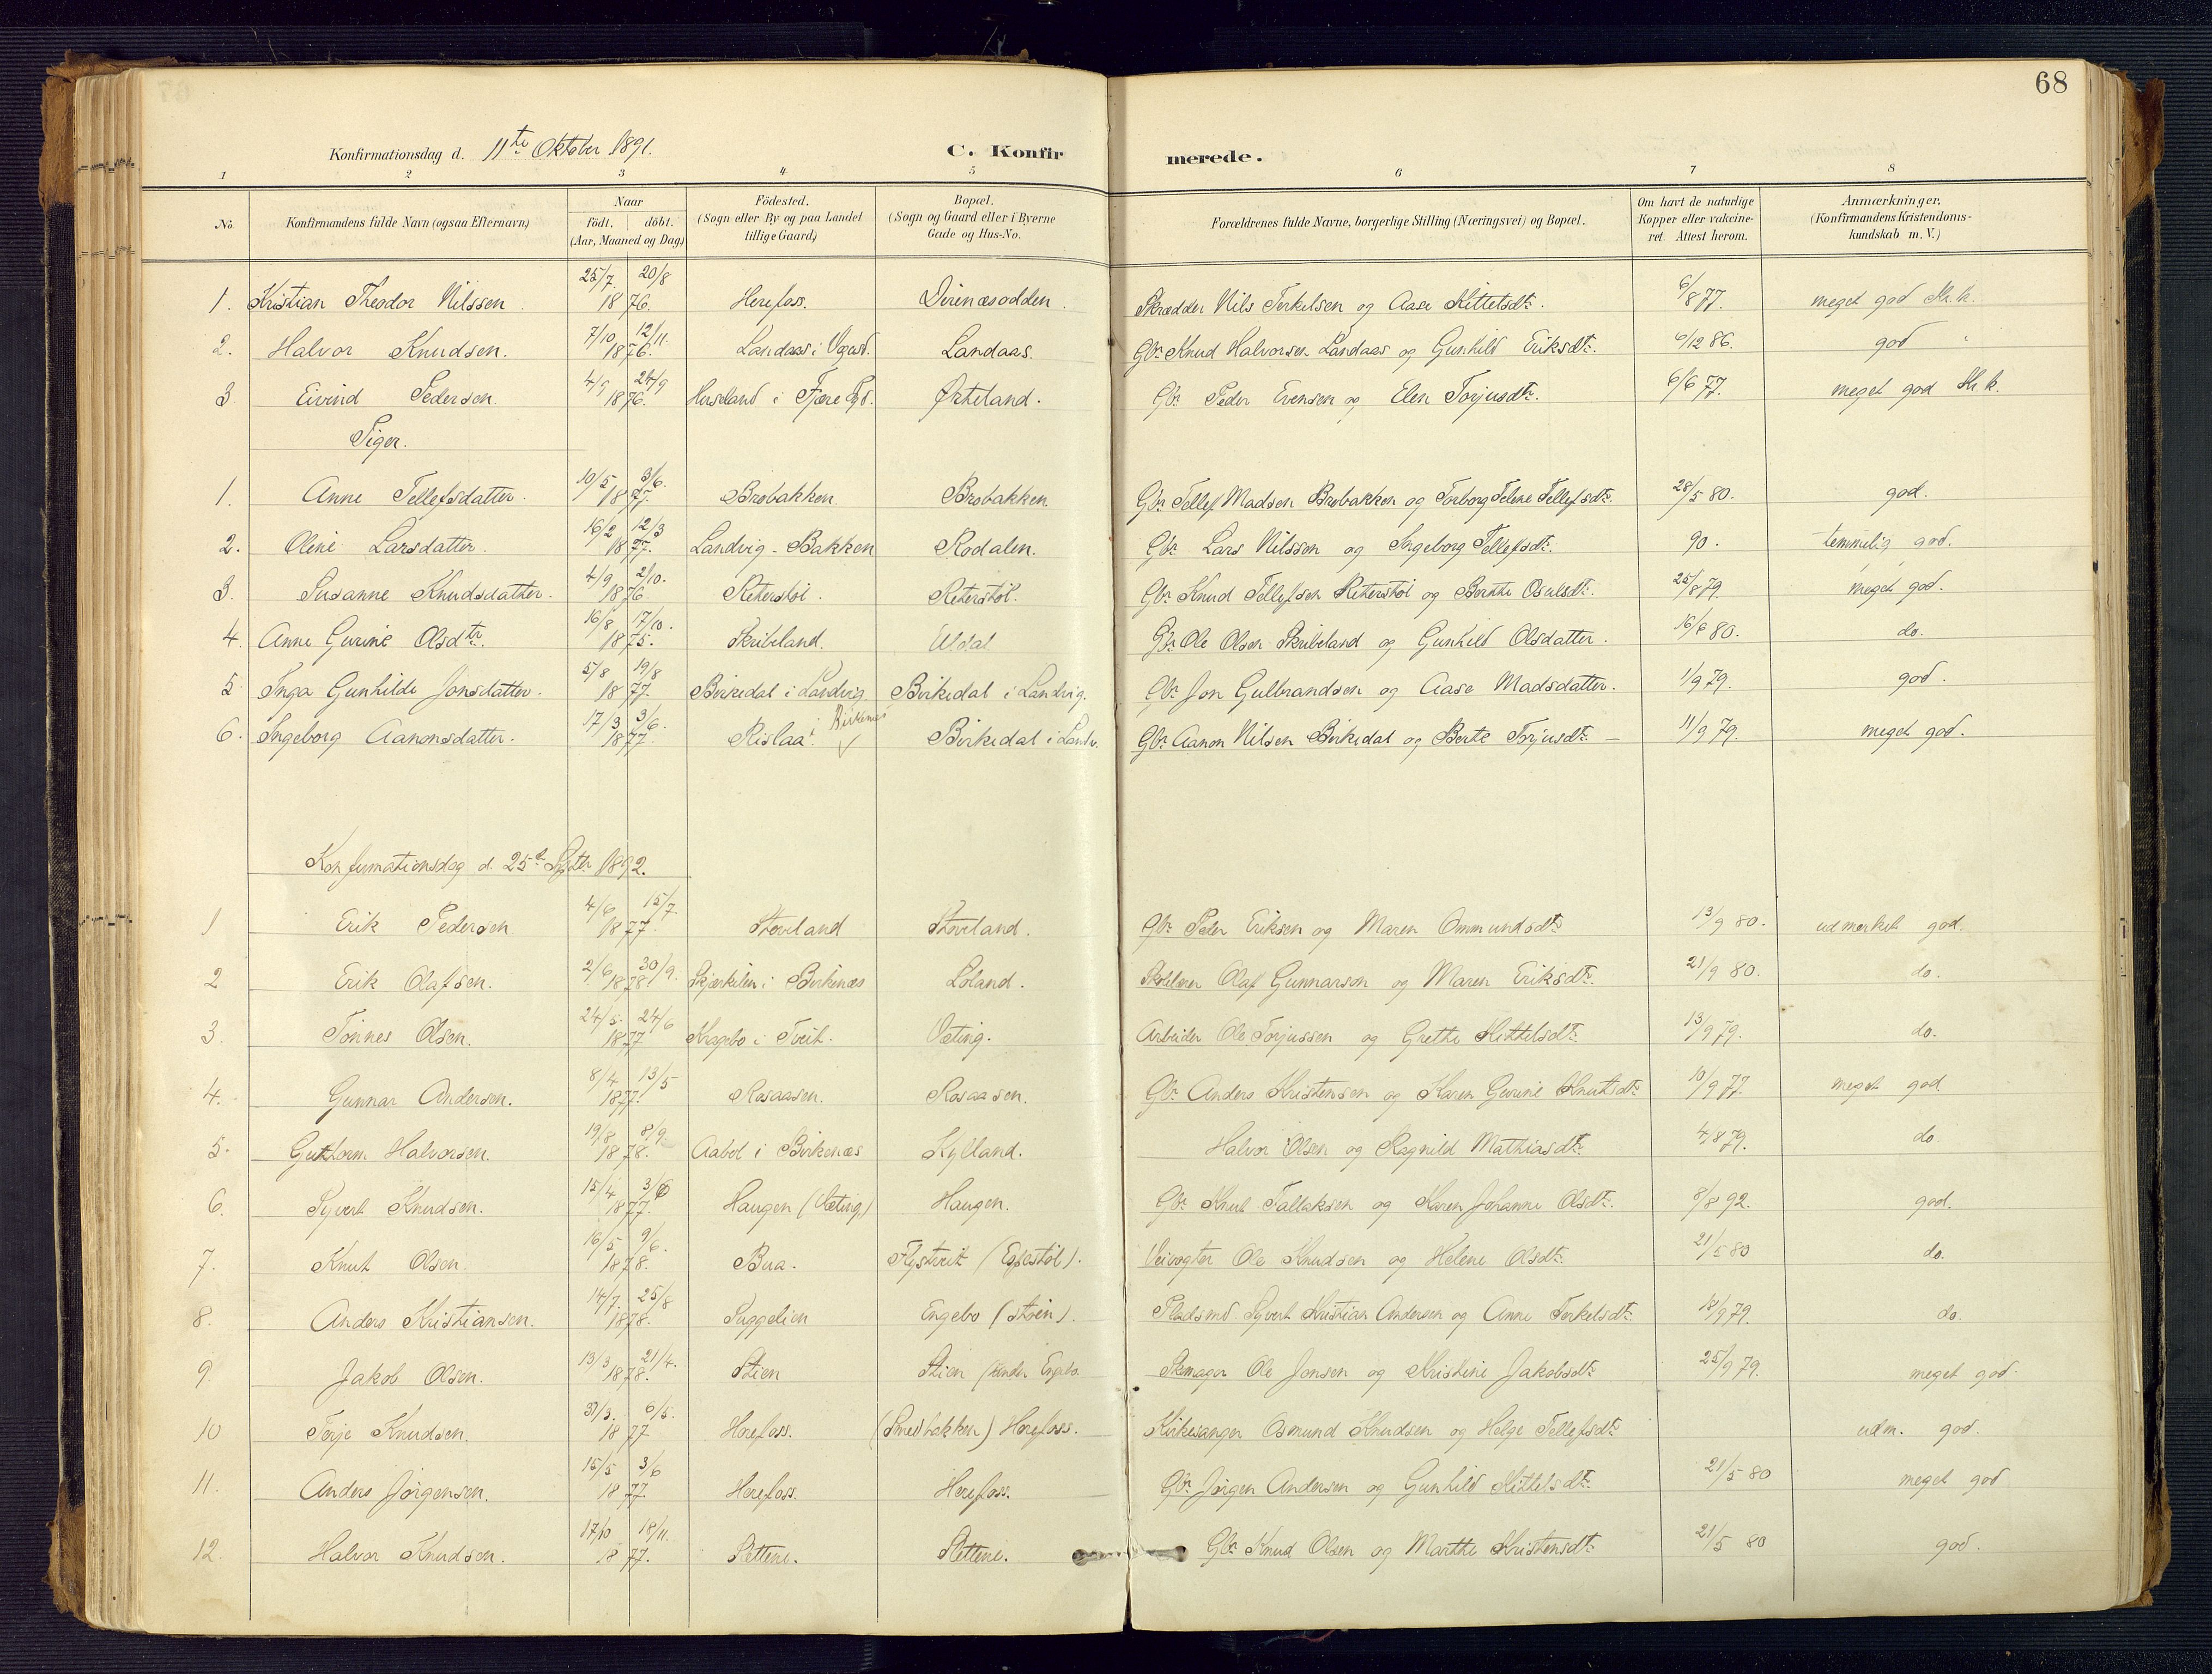 68
Konfirmationsdag d. 11te Oktober 1891.
C. Konfirmerede.
1 2 3 4 5 6 7 8
No. Konfirmandens fulde Navn (ogsaa Efternavn) Naar födt. döbt. (Aar, Maaned og Dag) Födested. (Sogn eller By og paa Landet tillige Gaard) Bopæl. (Sogn og Gaard eller i Byerne Gade og Hus-No. Forældrenes fulde Navne, borgerlige Stilling (Næringsvei) og Bopæl. Om havt de naturlige Kopper eller vakcineret. Attest herom. Anmærkninger. (Konfirmandens Kristendomskundskab m. V.)
1. Kristian Theodor Nilssen. 25/7 20/8 1876. Herefoss. Direnæsodden. Skrædder Nils Terkelsen og Aase Kittelsdtr. 6/8 77. meget god Kr.k.
2. Halvor Knudsen. 7/10 12/11 1876. Landaas i Landaas. Gbr Knud Halvorsen Landaas og Gunhild Eriksdtr. 6/12 86. god "
3 Eivind Pedersen. 4/9 24/9 1876. Huseland i Fjære Øxteland. Gbr Peder Evensen og Elen Torjusdtr. 6/6 77. meget god Kr.k.
Piger.
1. Anne Tellefsdatter. 10/5 3/6 1877. Brobakken Brobakken Gbr Tellef Madsen Brobakken og Torborg Telene Tellefsdtr. 28/5 80. god.
2. Oline Larsdatter. 16/2 12/3 1877. Landvig - Bakken Rodalen. Gbr Lars Nilsson og Ingeborg Tellefsdtr. 90. temmelig god.
3. Susanne Knudsdatter. 4/9 2/10 1876. Retterstøl. Retterstøl. Gbr Knud Tellefsen Retterstøl og Berthe Osulsdtr. 25/8 79. meget god.
4. Anne Gurine Olsdtr. 16/8 17/10 1875. Skribeland. Uldal Gbr Ole Olsen Skribeland og Gunhild Olsdatter. 16/6 80. do.
5 Inga Gunhilde Jonsdatter. 5/8 19/8 1877. Birkedal i Landvig Birkedal i Landvig. Gbr Jon Gulbrandsen og Aase Madsdatter. 1/9 79. god.
6. Ingeborg Aanonsdatter. 17/3 3/6 1877. Rislaa i Birkenes Birkedal i Landv. Gbr Aanon Nilsen Birkedal og Berte Torjusdtr. 11/9 79. meget god.
Konfirmationsdag d. 25de Septbr 1892.
1 Erik Pedersen 4/6 15/7 1877. Stoveland Stoveland. Gbr Peder Eriksen og Maren Ommundsdtr 13/9 80. udmerket god.
2 Erik Olafsen. 2/6 30/9 1878. Skjærkilen i Birkenæs Løland. Skolelærer Olaf Gunnarson og Maren Eriksdtr. 21/9 80. do.
3. Tönnes Olsen. 24/5 24/6 1877 Kragebo i Tveit. Væting. Arbeider Ole Torjussen og Grethe Kittelsdtr. 13/9 79. do.
4. Gunnar Andersen. 8/4 13/5 1877. Rosaasen. Rosaasen. Gbr Anders Kristensen og Karen Gurine Knutsdtr 10/9 77. meget god.
5. Guttorm Halvorsen. 19/8 8/9 1878. Aabol i Birkenæs Kylland. Halvor Olsen og Ragnild Mathiasdtr. 4/8 79. do.
6. Syvert Knudsen. 15/4 3/6 1877. Haugen (Væting) Haugen. Gbr Knut Tallaksen og Karen Johanne Olsdtr. 8/8 92. god.
7. Knut Olsen. 16/5 9/6 1878. Bua. Flystveit (Espestøl). Veivogter Ole Knudsen og Helene Olsdtr. 21/5 80 do.
8. Anders Kristiansen. 14/7 25/8 1878. Suggelien Engebo (Støen). Pladsmd Syvert Kristian Andersen og Anne Terkelsdtr. 18/9 79. do.
9. Jakob Olsen. 13/3 21/4 1878. Stien Stien (under Engebo. Skomager Ole Jonsen og Kristine Jakobsdtr 25/9 79. meget god.
10 Terje Knudsen. 31/3 6/5 1877 Herefoss. (Smedbakken) Herefoss. Kirkesanger Osmund Knudsen og Helge Tellefsdtr udm. god.
11. Anders Jörgensen. 15/5 3/6 1877. Herefoss. Herefoss. Gbr Jörgen Andersen og Gunhild Kittelsdtr. 21/5 80 meget god
12. Halvor Knudsen. 17/10 18/11 1877. Rettene. Rettene. Gbr Knud Olsen og Marthe Kristensdtr 21/5 80 god.